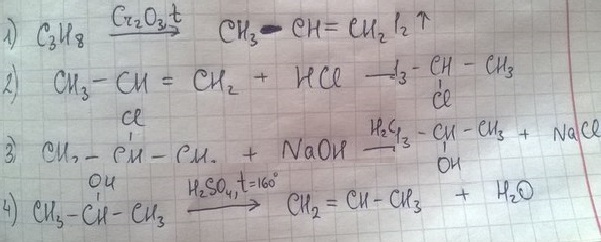 1) C3H8 Cr2O3, t → CH3 - CH = CH2 + H2 ↑
2) CH3 - CH = CH2 + HCl → CH3 - CH - CH3
Cl
Cl
3) CH3 - CH - CH3 + NaOH H2O → CH3 - CH - CH3 + NaCl
OH
OH
4) CH3 - CH - CH3 H2SO4, t = 160° → CH2 = CH - CH3 + H2O